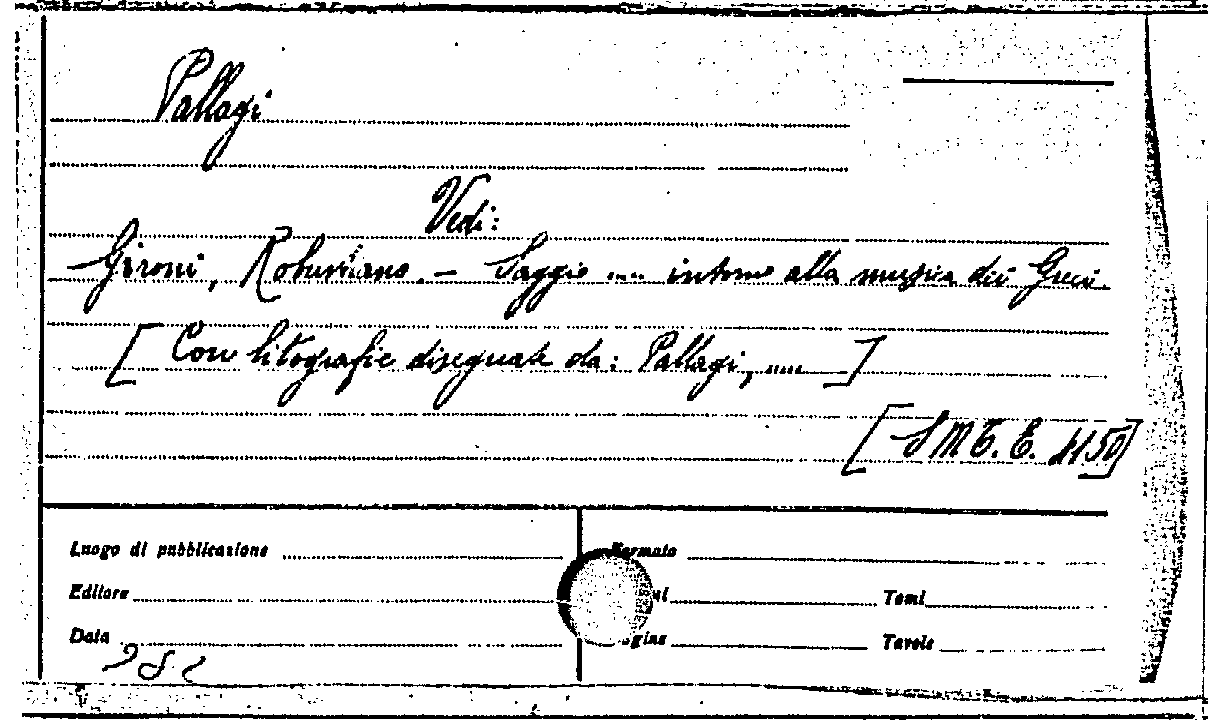 Pallagi
Vedi:
Gironi, Robustiano. — Saggio .... intorno alla musica dei Greci
[ Con litografie disegnate da: Pallagi, .... ]
[ SMT. E. 4150]
Luogo di pubblicazione
Formato
Editore
Tomi
Data
Tavole